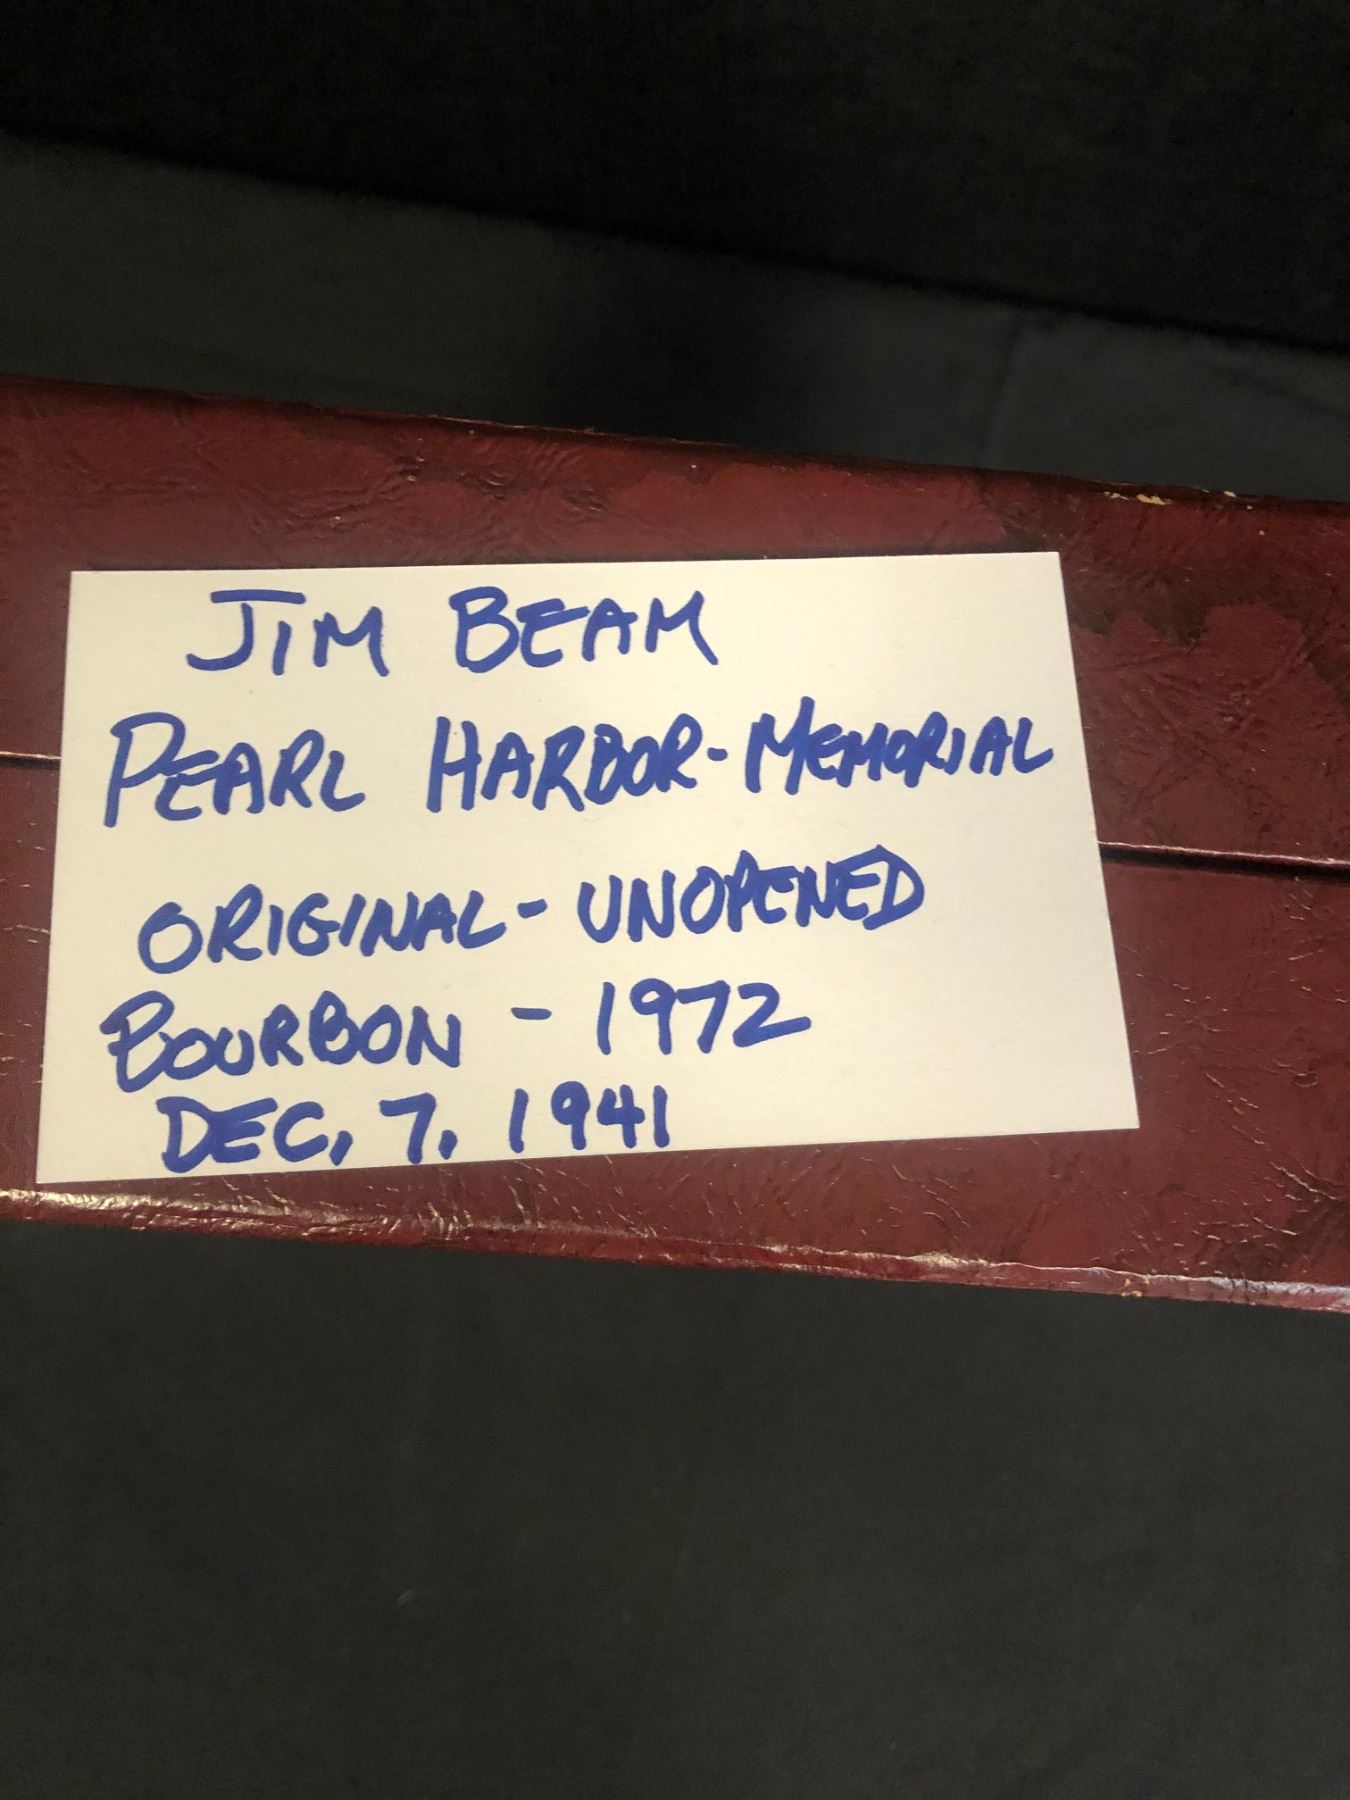 JIM BEAM
PEARL HARBOR-MEMORIAL
ORIGINAL-UNOPENED
BOURBON - 1972
DEC, 7, 1941